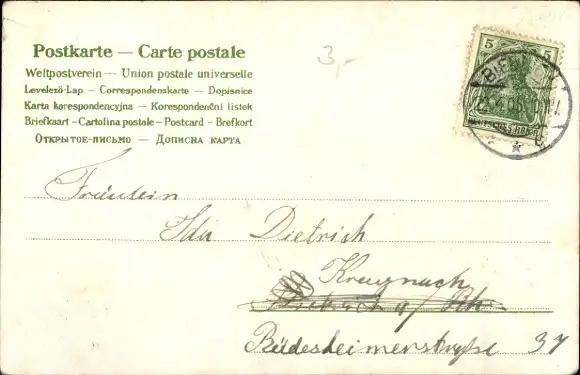 Postkarte — Carte postale
Weltpostverein — Union postale universelle
Levelező-Lap — Correspondenskarte — Dopisnice
Karta korespondencyjna — Korespondenční lístek
Briefkaart — Cartolina postale — Postcard — Brefkort
Открытое-письмо — Дописна карта
3,-
5 5
Fräulein
Ida Dietrich
Kreuznach
Rüdesheimerstraße 37